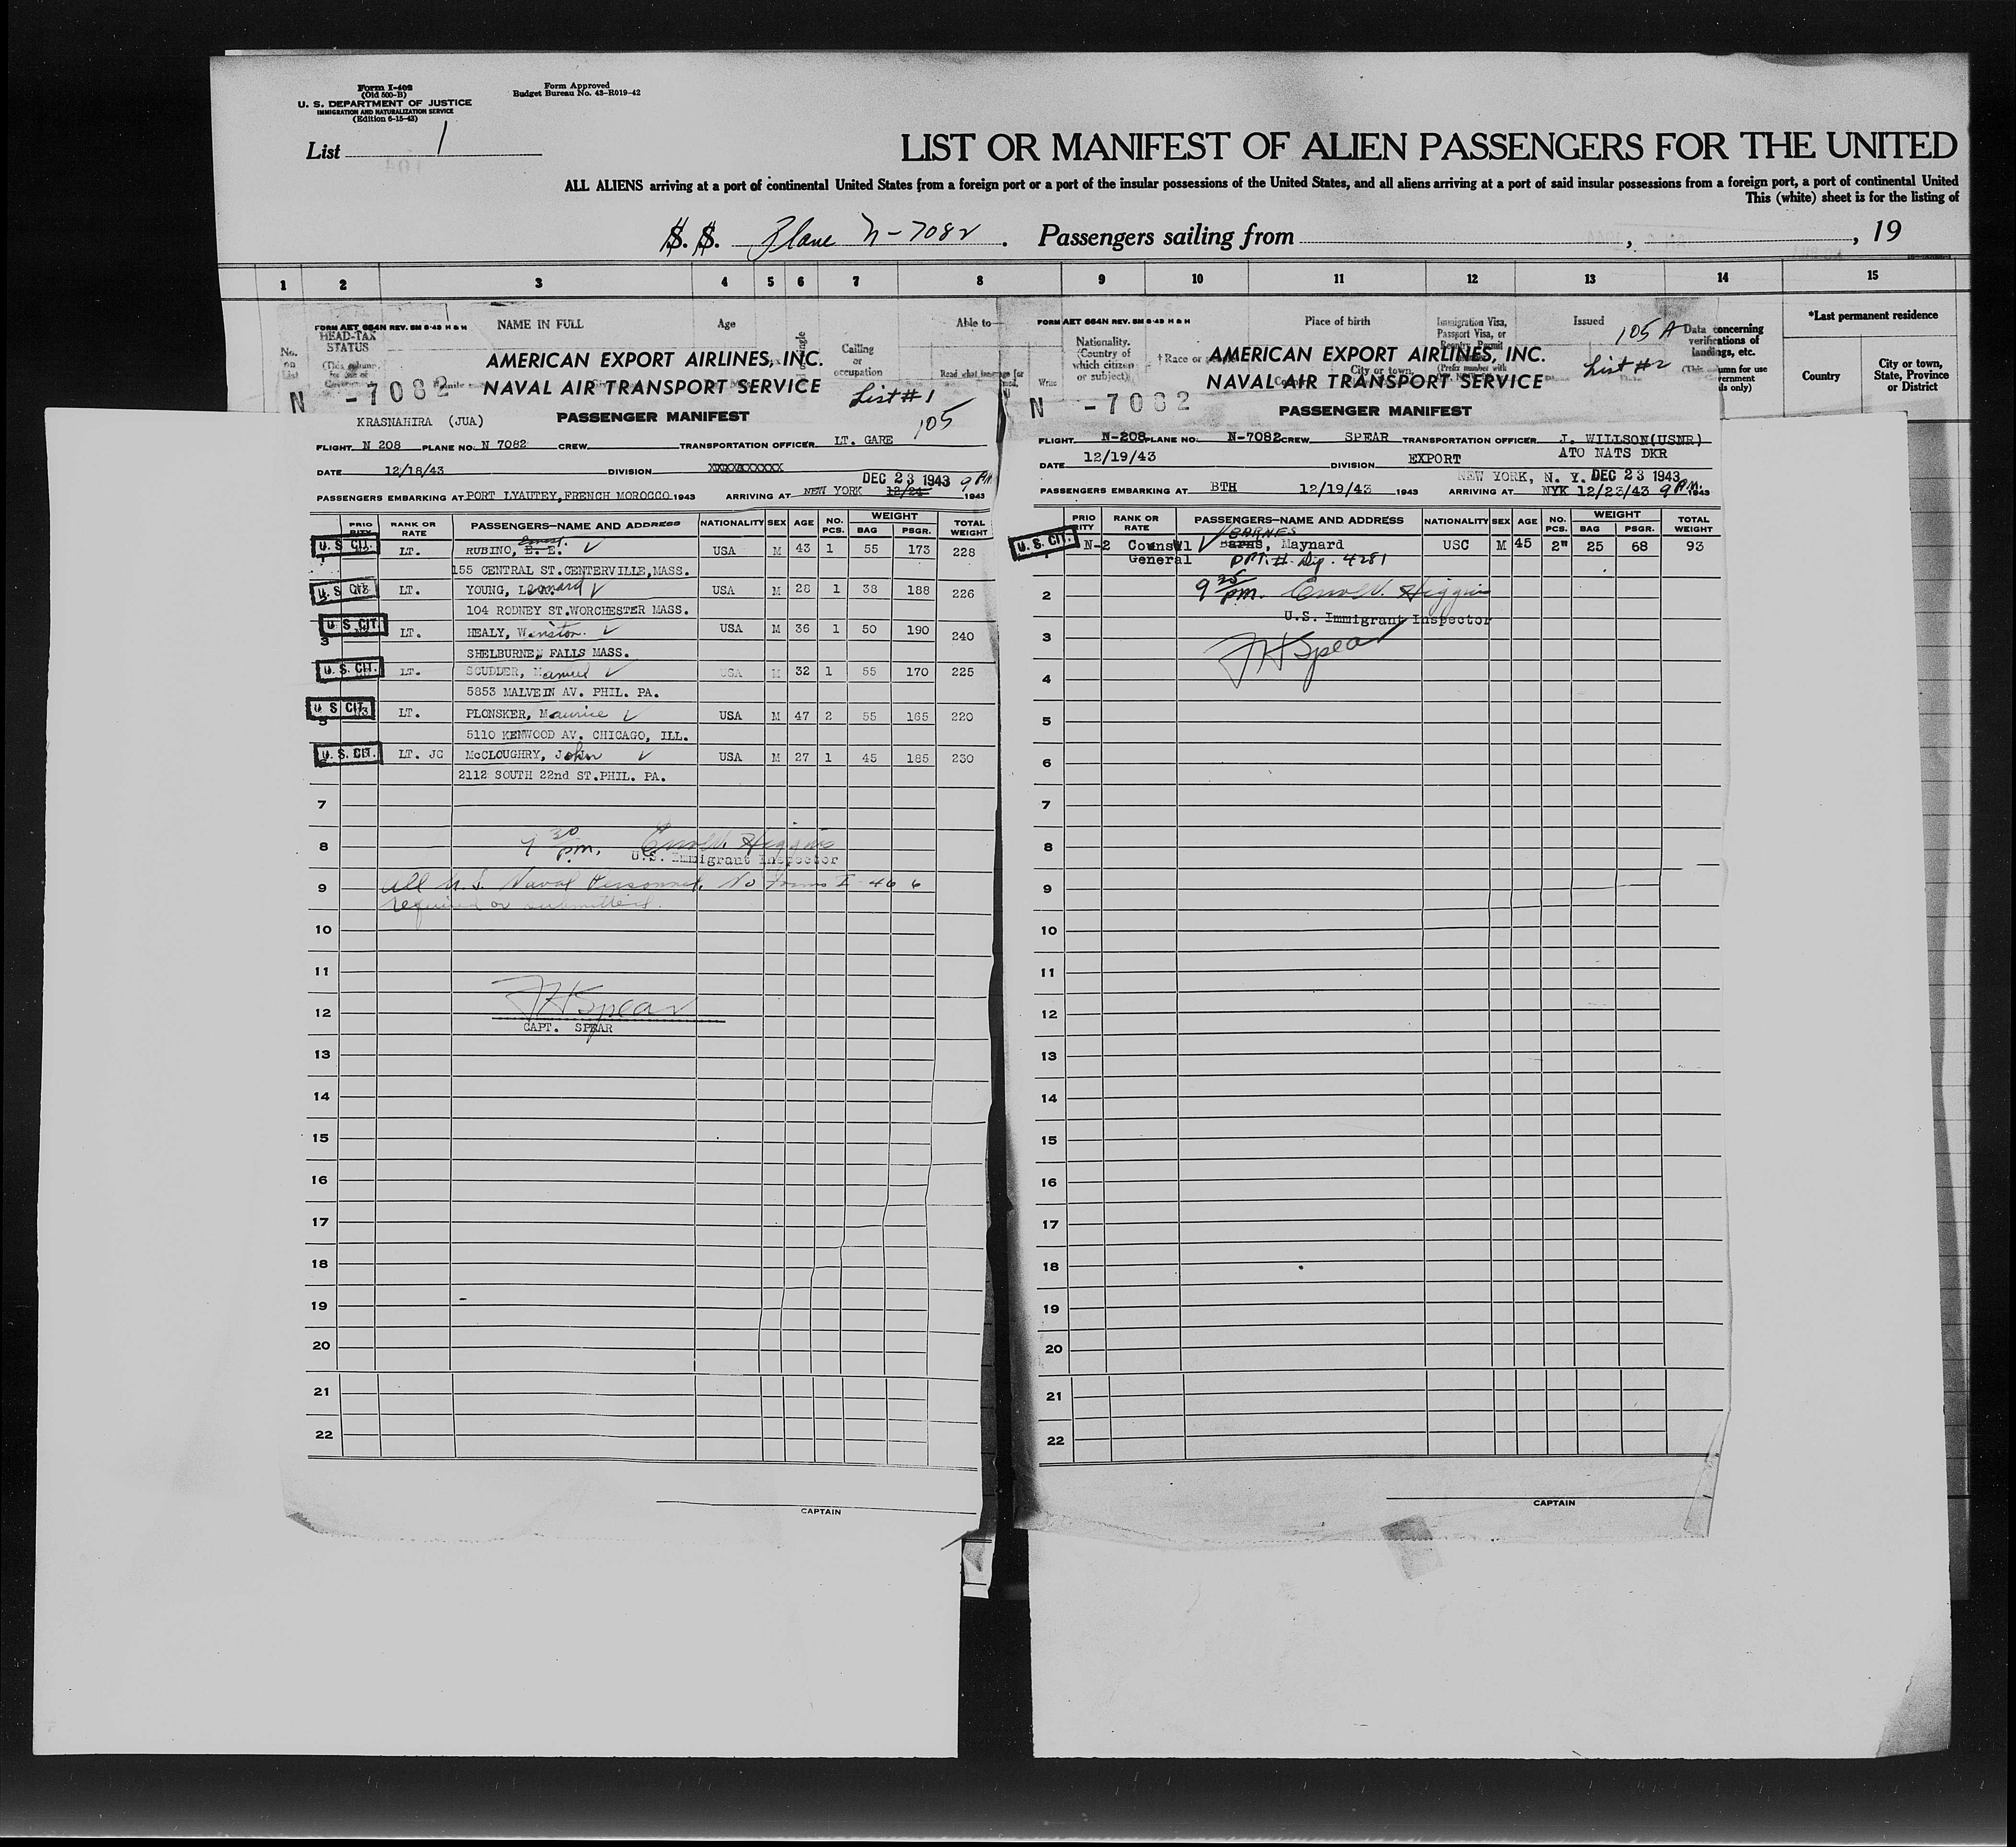 Form I-402
(Old 500-B)
U. S. DEPARTMENT OF JUSTICE
IMMIGRATION AND NATURALIZATION SERVICE
(Edition 6-15-43)
Form Approved
Budget Bureau No. 43-R019-42
List 1
LIST OR MANIFEST OF ALIEN PASSENGERS FOR THE UNITED
ALL ALIENS arriving at a port of continental United States from a foreign port or a port of the insular possessions of the United States, and all aliens arriving at a port of said insular possessions from a foreign port, a port of continental United
This (white) sheet is for the listing of
S. S. Plane N-7082. Passengers sailing from , , 19
1 2 3 4 5 6 7 8 9 10 11 12 13 14 15
NAME IN FULL Age Able to Place of birth Issued
HEAD-TAX STATUS
No. on List
Calling or occupation
Nationality. (Country of which citizen or subject)
† Race or
City or town,
Immigration Visa, Passport Visa, or
Data concerning verifications of landings, etc.
*Last permanent residence
Country
City or town, State, Province or District
FORM AET 664N REV. 5M 6-43 H & H
AMERICAN EXPORT AIRLINES, INC.
NAVAL AIR TRANSPORT SERVICE
N -7082
List #1
105
KRASNAHIRA (JUA)
PASSENGER MANIFEST
FLIGHT N 208 PLANE NO. N 7082 CREW TRANSPORTATION OFFICER LT. GARE
DATE 12/18/43 DIVISION XXXXXXXXXX
DEC 23 1943 9 PM
PASSENGERS EMBARKING AT PORT LYAUTEY, FRENCH MOROCCO 1943 ARRIVING AT NEW YORK 12/24 1943
PRIORITY RANK OR RATE PASSENGERS—NAME AND ADDRESS NATIONALITY SEX AGE NO. PCS. WEIGHT BAG PSGR. TOTAL WEIGHT
U. S CIT. LT. RUBINO, E. E. Ernest. USA M 43 1 55 173 228
155 CENTRAL ST. CENTERVILLE, MASS.
U. S CIT. LT. YOUNG, Leonard USA M 28 1 38 188 226
104 RODNEY ST. WORCHESTER MASS.
U. S CIT. 3 LT. HEALY, Winston. USA M 36 1 50 190 240
SHELBURNE, FALLS MASS.
U. S. CIT. LT. SCUDDER, Samuel USA M 32 1 55 170 225
5853 MALVEIN AV. PHIL. PA.
U S CIT. 5 LT. PLONSKER, Maurice USA M 47 2 55 165 220
5110 KENWOOD AV. CHICAGO, ILL.
U. S. CIT. LT. JG McCLOUGHRY, John USA M 27 1 45 185 230
2112 SOUTH 22nd ST. PHIL. PA.
7
8
9 30 pm.
U.S. Immigrant Inspector
9
All U.S. Naval Personnel. No Forms I-466
required or submitted.
10
11
12
F H Spear
CAPT. SPEAR
13
14
15
16
17
18
19
20
21
22
CAPTAIN
FORM AET 664N REV. 5M 6-43 H & H
105 A
AMERICAN EXPORT AIRLINES, INC.
NAVAL AIR TRANSPORT SERVICE
List #2
N -7082
PASSENGER MANIFEST
FLIGHT N-208 PLANE NO. N-7082 CREW SPEAR TRANSPORTATION OFFICER J. WILLSON(USNR)
ATO NATS DKR
DATE 12/19/43 DIVISION EXPORT
NEW YORK, N. Y. DEC 23 1943
PASSENGERS EMBARKING AT BTH 12/19/43 1943 ARRIVING AT NYK 12/23/43 9 PM. 1943
PRIORITY RANK OR RATE PASSENGERS—NAME AND ADDRESS NATIONALITY SEX AGE NO. PCS. WEIGHT BAG PSGR. TOTAL WEIGHT
BARNES
U. S. CIT. N-2 Counsul General Barns, Maynard USC M 45 2" 25 68 93
PPT. # Dip. 4281
2
9 25 pm.
U.S. Immigrant Inspector
3
F H Spear
4
5
6
7
8
9
10
11
12
13
14
15
16
17
18
19
20
21
22
CAPTAIN